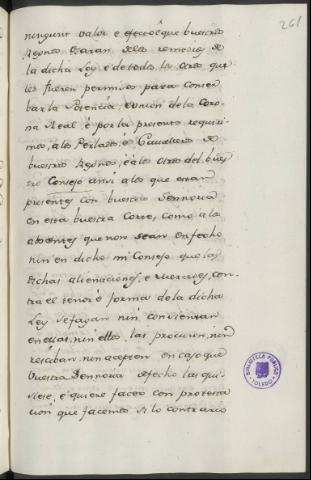 261
ningunt valor e efecto e que buestros
Regnos usaran de los remedios de
la dicha Ley, e de todos los otros que
les fueren permisos para conser
bar la Potencia, e union de la Coro-
na Real; e por la presente requiri-
mos, a los Perlados, e Cavalleros de
buestros Regnos, e a los otros del bues
tro Consejo ansi a los que estan
presentes con buestra Sennoria
en esta buestra Corte, como a los
absentes que non sean en fecho
nin en dicho, ni Consejo que las
dichas alienaciones, e mercedes, con-
tra el tenor e forma de la dicha
Ley se fagan nin consientan
en ellas, nin ellos las procuren, nin
resciban, nin acepten en caso que
buestra Sennoria de fecho las qui-
siese, e quiere facer con protesta
cion que faciendo si lo contrario
BIBLIOTECA PUBLICA
TOLEDO